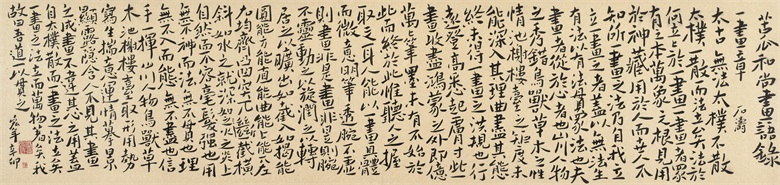 苦瓜和尚畫語錄
一畫章 石濤
太古無法太朴不散
太朴一散而法立矣法於
何立立於一畫一畫者衆
有之本萬象之根見用
於神藏用於人而世人不
知所以一畫之法乃自我立
立一畫之法者蓋以無法生
有法以有法貫衆法也夫
畫者從於心者也山川人物
之秀錯鳥獸草木之性
情池榭樓臺之矩度未
能深入其理曲盡其態
終未得一畫之洪規也行
遠登高悉起膚寸此一
畫收盡鴻蒙之外即億
萬萬筆墨未有不始於
此而終於此惟聽人之握
取之耳人能以一畫具體
而微意明筆透腕不虛
則畫非是畫非是則腕
不靈動之以旋潤之以轉
居之以曠出如截入如揭能
圓能方能直能曲能上能下左
右均齊凸凹突兀斷截橫
斜如水之就深如火之炎上
自然而不容毫髮強也用
無不神而法無不貫也理
無不入而態無不盡也信
手一揮山川人物鳥獸草
木池榭樓臺取形用勢
寫生揣意運情摹景
顯露隱含人不見其畫
之成畫不違其心之用蓋
自太朴散而一畫之法立矣
一畫之法立而萬物著矣我
故曰吾道一以貫之